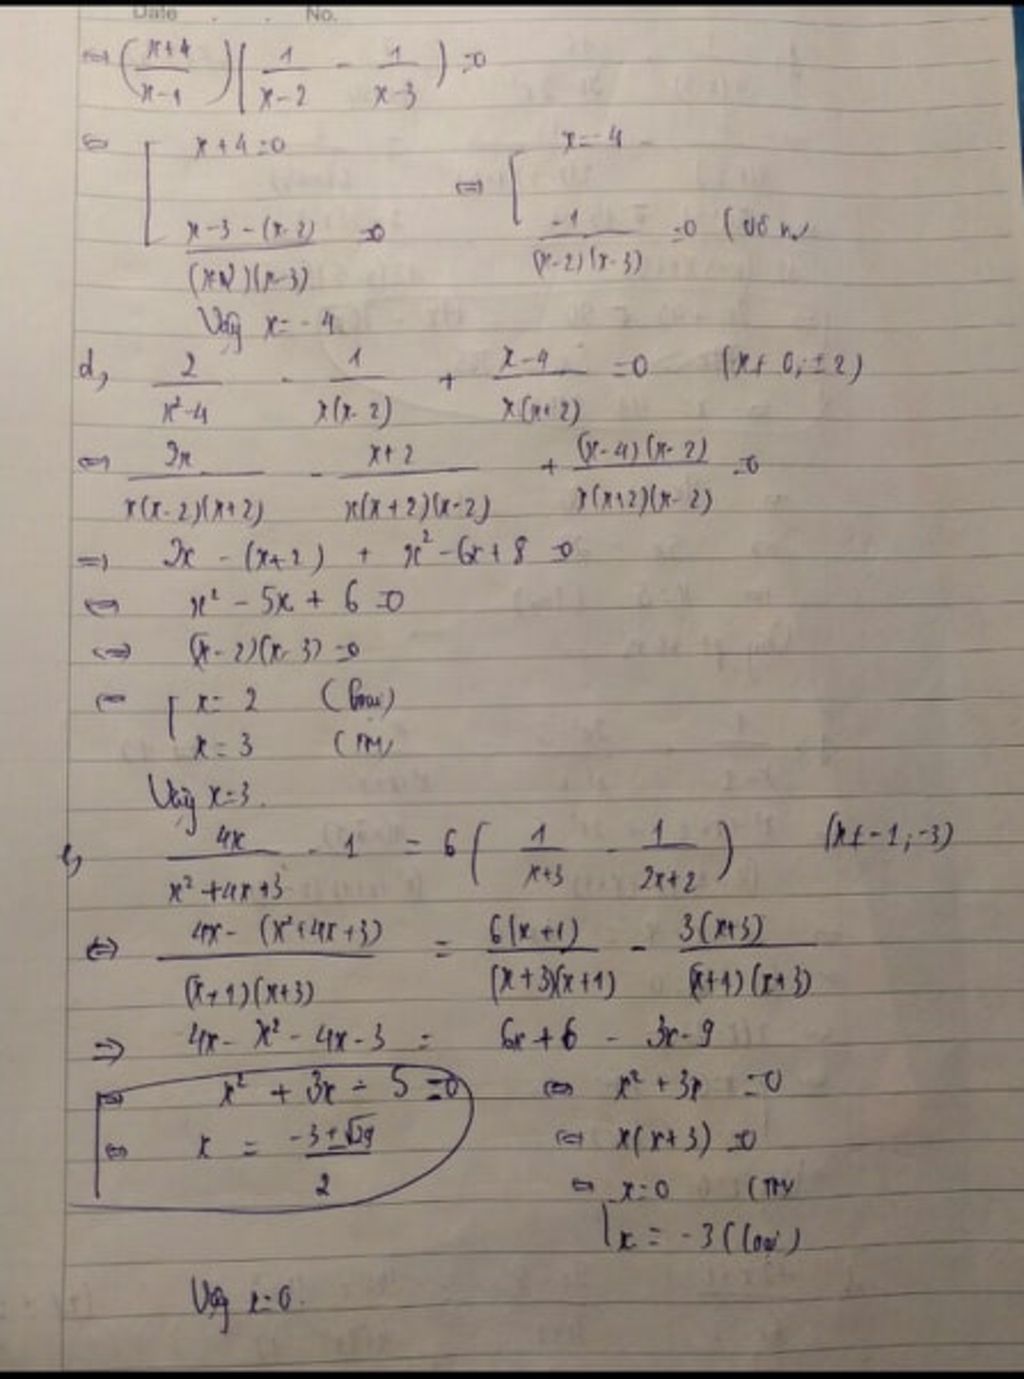 Date . . No.
⇔ (x+4/x-1)(1/x-2 - 1/x-3) =0
⇔ [ x+4=0 ⇔ [ x=-4
x-3-(x-2)/(x-2)(x-3) =0 -1/(x-2)(x-3) =0 (Vô n
Vậy x=-4
d, 2/x²-4 - 1/x(x-2) + x-4/x(x+2) =0 (x≠0;±2)
⇔ 2x/x(x-2)(x+2) - x+2/x(x+2)(x-2) + (x-4)(x-2)/x(x+2)(x-2) =0
⇒ 2x - (x+2) + x²-6x+8 =0
⇔ x² - 5x + 6 =0
⇔ (x-2)(x-3) =0
⇔ [ x= 2 (loại)
x= 3 (TM)
Vậy x=3.
e, 4x/x²+4x+3 - 1 = 6(1/x+3 - 1/2x+2) (x≠-1;-3)
⇔ 4x-(x²+4x+3)/(x+1)(x+3) = 6(x+1)/(x+3)(x+1) - 3(x+3)/(x+1)(x+3)
⇒ 4x-x²-4x-3 = 6x+6 - 3x-9
⇔ x² + 3x - 5 =0 ⇔ x² + 3x =0
⇔ x = -3±√29/2 ⇔ x(x+3) =0
⇔ [ x=0 (TM)
x = -3 (loại)
Vậy x=0.